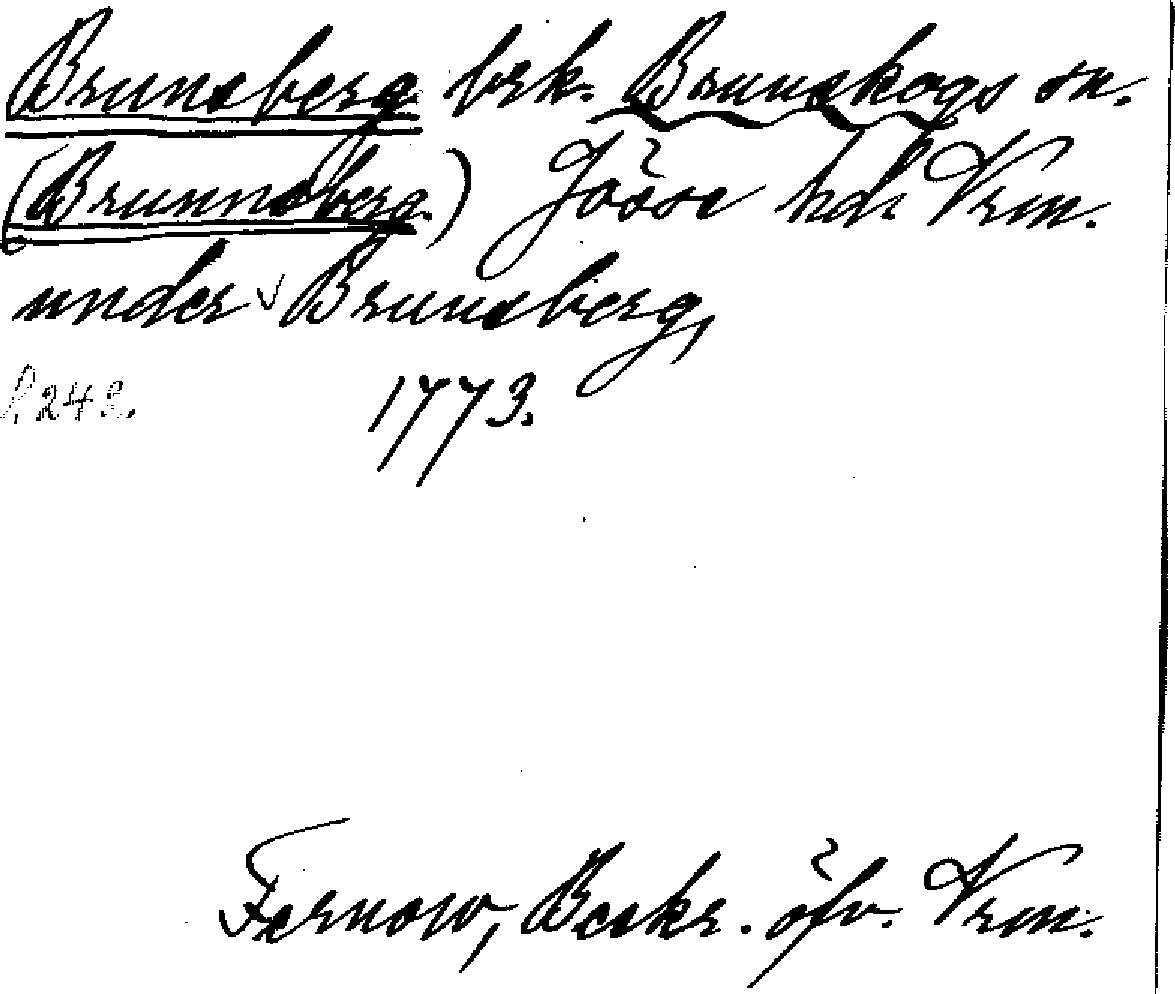 Brunsberg brk. Brunskogs sn.
(Brunnsberg.) Jösse hd. Vrm.
under Brunsberg,
1773.
Fernow, Beskr. öfv. Vrm.